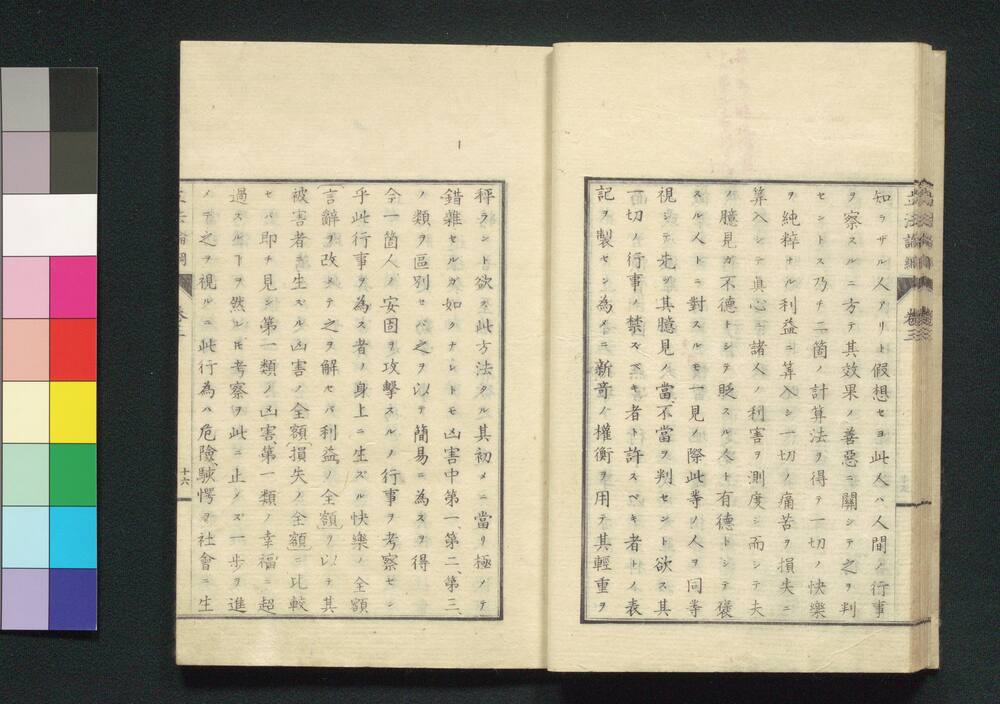 知ラザル人アリト假想セヨ此人ハ人間ノ行事
ヲ察スルニ方テ其效果ノ善惡ニ關シテ之ヲ判
セントス乃チ二箇ノ計算法ヲ得テ一切ノ快樂
ヲ純粹ナル利益ニ算入シ一切ノ痛苦ヲ損失ニ
算入シテ眞心ニ諸人ノ利害ヲ測度シ而シテ夫
ノ臆見ガ不德トシテ貶スル人ト有德トシテ褒
スル人トニ對スルモ一見ノ際此等ノ人ヲ同等
視シテ先ヅ其臆見ノ當不當ヲ判セント欲ス其
一切ノ行事ノ禁ズベキ者ト許スベキ者トノ表
記ヲ製セン為メニ新奇ノ權衡ヲ用テ其輕重ヲ
秤ラント欲ス此方法タル其初メニ當リ極メテ
錯雜セルガ如クナレトモ凶害中第一、第二、第三、
ノ類ヲ區別セバ之ヲ以テ簡易ニ為スヲ得
今一箇人ノ安固ヲ攻擊スルノ行事ヲ考察セン
乎此行事ヲ為ス者ノ身上ニ生ズル快樂ノ全額
〔言辭ヲ改メテ之ヲ解セバ利益ノ全額〕ヲ以テ其
被害者ニ生ズル凶害ノ全額〔損失ノ全額〕ニ比較
セバ即チ見ン第一類ノ凶害、第一類ノ幸福ニ超
過スルヿヲ然レ𪜈考察ヲ此ニ止メズ一歩ヲ進
メテ之ヲ視ルニ此行為ハ危險、駭愕ヲ社會ニ生
十六